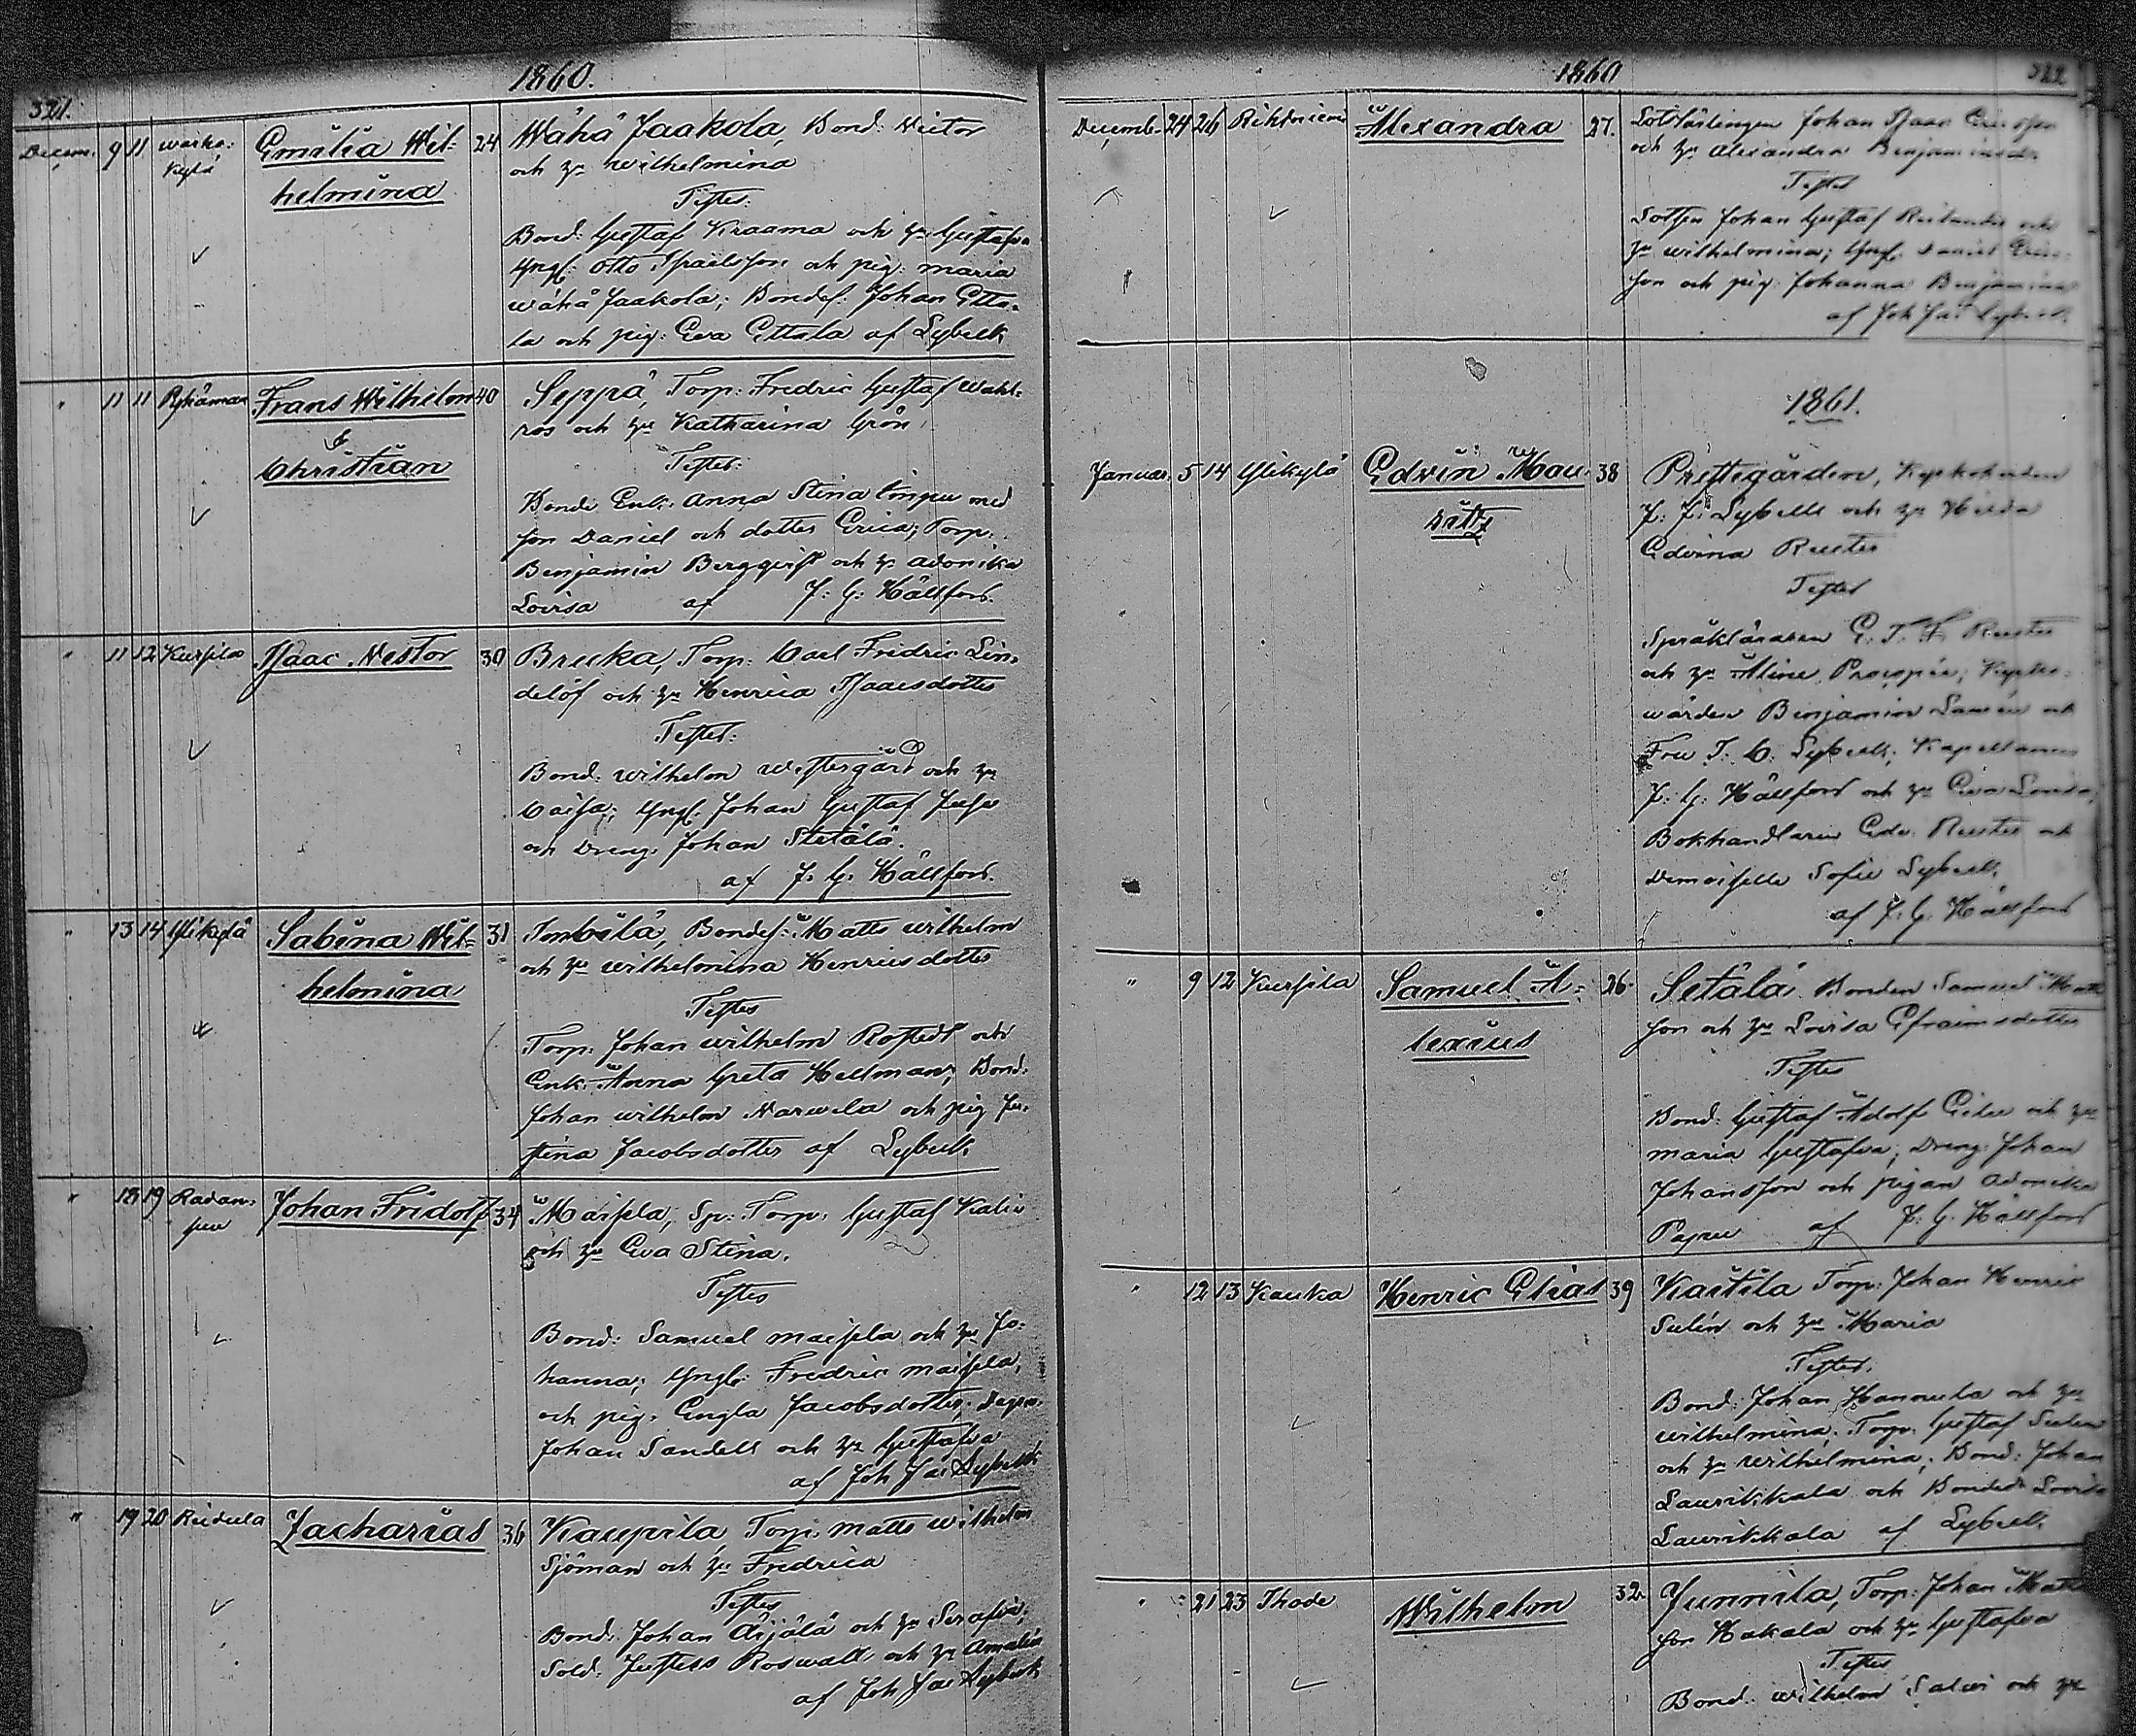 1860.
321.
Decem. 9 11 Warha: Emilia Wil: 24 Wähä Jaakola, Bond: Victor
kylä helmina och hu Wilhelmina
Testes:
Bond: Gustaf Kraama och hu Gustafva
Yngl: Otto Israelsson och pig: Maria
Wähä Jaakola; Bondes: Johan Etta-
la och pig: Eva Ettala af Lybeck
" 11 11 Frans Wilhelm 40 Seppä, Torp: Fredric Gustaf Wahl-
& ros och hu Katharina Grön
Christian Testes:
Bonde Enk: Anna Stina med
son Daniel och dotter Erica; Torp:
Benjamin Bergqvist och hu Adonika
Lovisa af J: G: Hällfors.
" 11 12 Kursila Isaac Nestor 30 Brucka, Torp: Carl Fredric Lin-
delöf och hu Henrica Isaacsdotter
Testes:
Bond: Wilhelm Westergård och hu
Caisa; Yngl: Johan Gustaf
och Dreng: Johan Stetälä.
af J. G. Hällfors.
" 13 14 Ylikylä Sabina Wil- 31 Tombilä, Bondes: Matts Wilhelm
helmina och hu Wilhelmina Henricsdotter
Testes
Torp: Johan Wilhelm Rostedt och
Enk: Anna Greta Hellman; Bond:
Johan Wilhelm Narvela och pig Ju-
stina Jacobsdotter af Lybeck.
" 18 19 Radan- Johan Fridolf 34 Maisela, Sp: Torp: Gustaf Kalin
suu och hu Eva Stina.
Testes
Bond: Samuel Maisela och hu Jo-
hanna; Yngl: Fredric Maisela,
och pig. Engla Jacobsdotter;
Johan Sandell och hu Gustafva
af Joh Jac Lybeck
" 19 20 Ruidula Zacharias 36 Kaupila, Torp: Matts Wilhelm
Sjöman och hu Fredrica
Testes
Bond: Johan Äijälä och hu Serafia;
Sold: Justus Roswall och hu Amalia
af Joh Jac Lybeck
1860
322
Decemb. 24 26 Alexandra 27. Johan Isaac Ericsson
och hu Alexandra Benjaminsdr
Testes
Lotsen Johan Gustaf och
hu Wilhelmina; Yngl: Daniel Erics-
son och pig: Johanna Benjamins
af Joh Jac Lybeck.
1861.
Januar. 5 14 Ylikylä Edvin Mau- 38 Prestegården, Kyrkoherden
ritz J: J: Lybeck och hu Hilda
Edvina Reuter
Testes
Språkläraren E. T. F. Reuter
och hu Aline Procopée; Kyrko-
wärden Benjamin och
Fru T. C. Lybeck; Kapellanen
J: G: Hällfors och hu Eva Lovisa;
Bokhandlaren Edv: Reuter och
Demoiselle Sofie Lybeck.
af J: G: Hällfors
" 9 12 Kursila Samuel A- 26. Setälä. Bonden Samuel Matts
lexius son och hu Lovisa Efraimsdotter
Testes
Bond: Gustaf Adolf och hu
Maria Gustafva; Dreng: Johan
Johansson och pigan Adonika
af J: G: Hällfors
" 12 13 Kauka Henric Elias 39 Kaitila Torp: Johan Henric
Sulin och hu Maria
Testes.
Bond: Johan Hannula och hu
Wilhelmina; Torp: Gustaf Sulin
och hu Wilhelmina; Bond: Johan
Laurikkala och Bondedr Lovisa
Laurikkala af Lybeck.
" 21 23 Thode Wilhelm 32. Junnila, Torp: Johan Matts
son Hakala och hu Gustafva
Testes
Bond: Wilhelm Salvi och hu